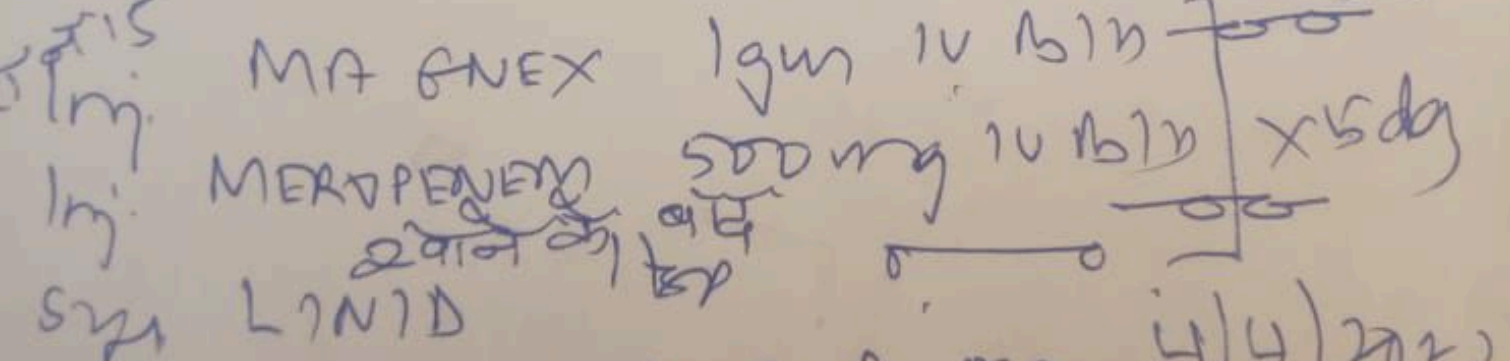 Inj. MAGNEX 1gm IV B1D
Inj. MEROPENEM 500 mg IV B1D x 5 day
खाने के बाद
Syr LINID
4/4/202